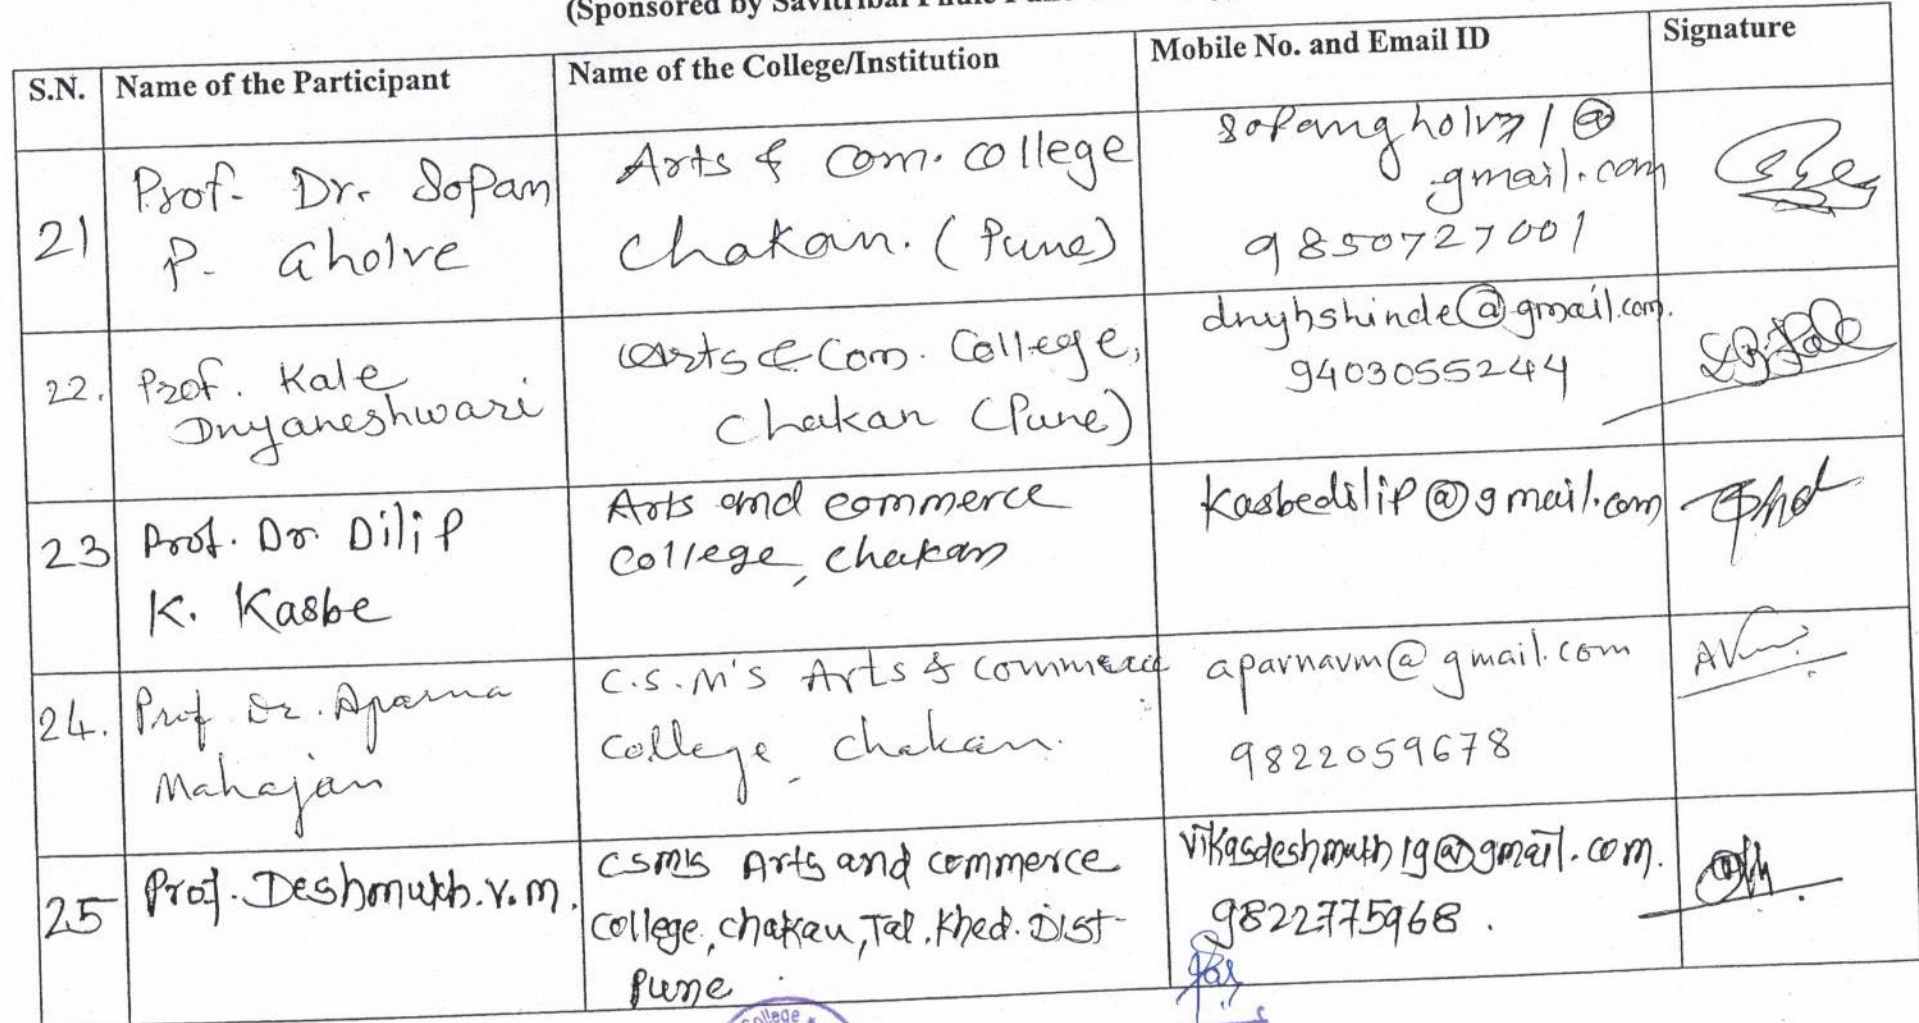 (Sponsored by Savitribai Phule Pune
S.N. Name of the Participant Name of the College/Institution Mobile No. and Email ID Signature
21 Prof. Dr. Sopan
P. Gholve
Arts & Com. college
Chakan. (Pune)
gmail.com
9850727001
22. Prof. Kale
Dnyaneshwari
Arts & Com. College,
Chakan (Pune)
dnyhshinde@gmail.com.
9403055244
23 Prof. Dr. Dilip
K. Kasbe
Arts and commerce
College, chakan
kasbedilip@gmail.com
24. Prof Dr. Aparna
Mahajan
C.S.M's Arts & Commerce
College, Chakan.
aparnavm@gmail.com
9822059678
25 Prof. Deshmukh.V.M.
CSM's Arts and commerce
College, chakan, Tal. Khed. Dist-
Pune
vikasdeshmukh19@gmail.com.
9822775968.
College